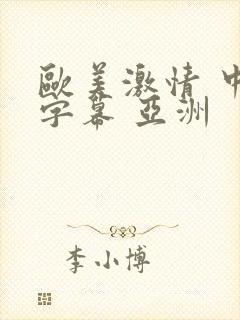 歐美激情 中
字幕 亞洲
李小博